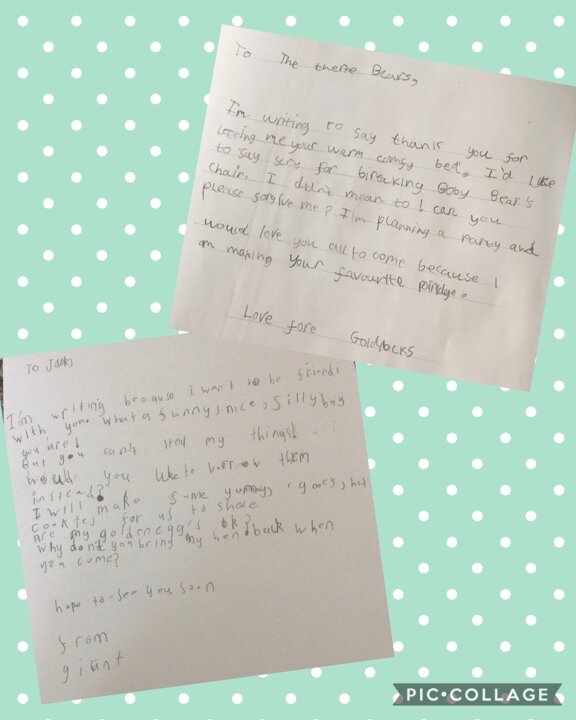 To The theree Bears,
I'm writing to say thank you for
letting me your warm comsy bed. I'd like
to say sory for bireaking Baby Bear's
chair. I didn't mean to! can you
please forgive me? I'm planning a party and
would love you all to come because I
am making your favourite poridge.
Love fore Goldilocks
To Jack,
I'm writing because I want to be friends
with you. What a funny, nice, silly boy
you are!
but you can't steal my things!
would you like to borrow them
instead?
I will make some yummy, gooey, hot
cookies for us to share
Are my golden egg's ok?
Why don't you bring my hen back when
you come?
hope to see you soon
from
giant
PIC•COLLAGE